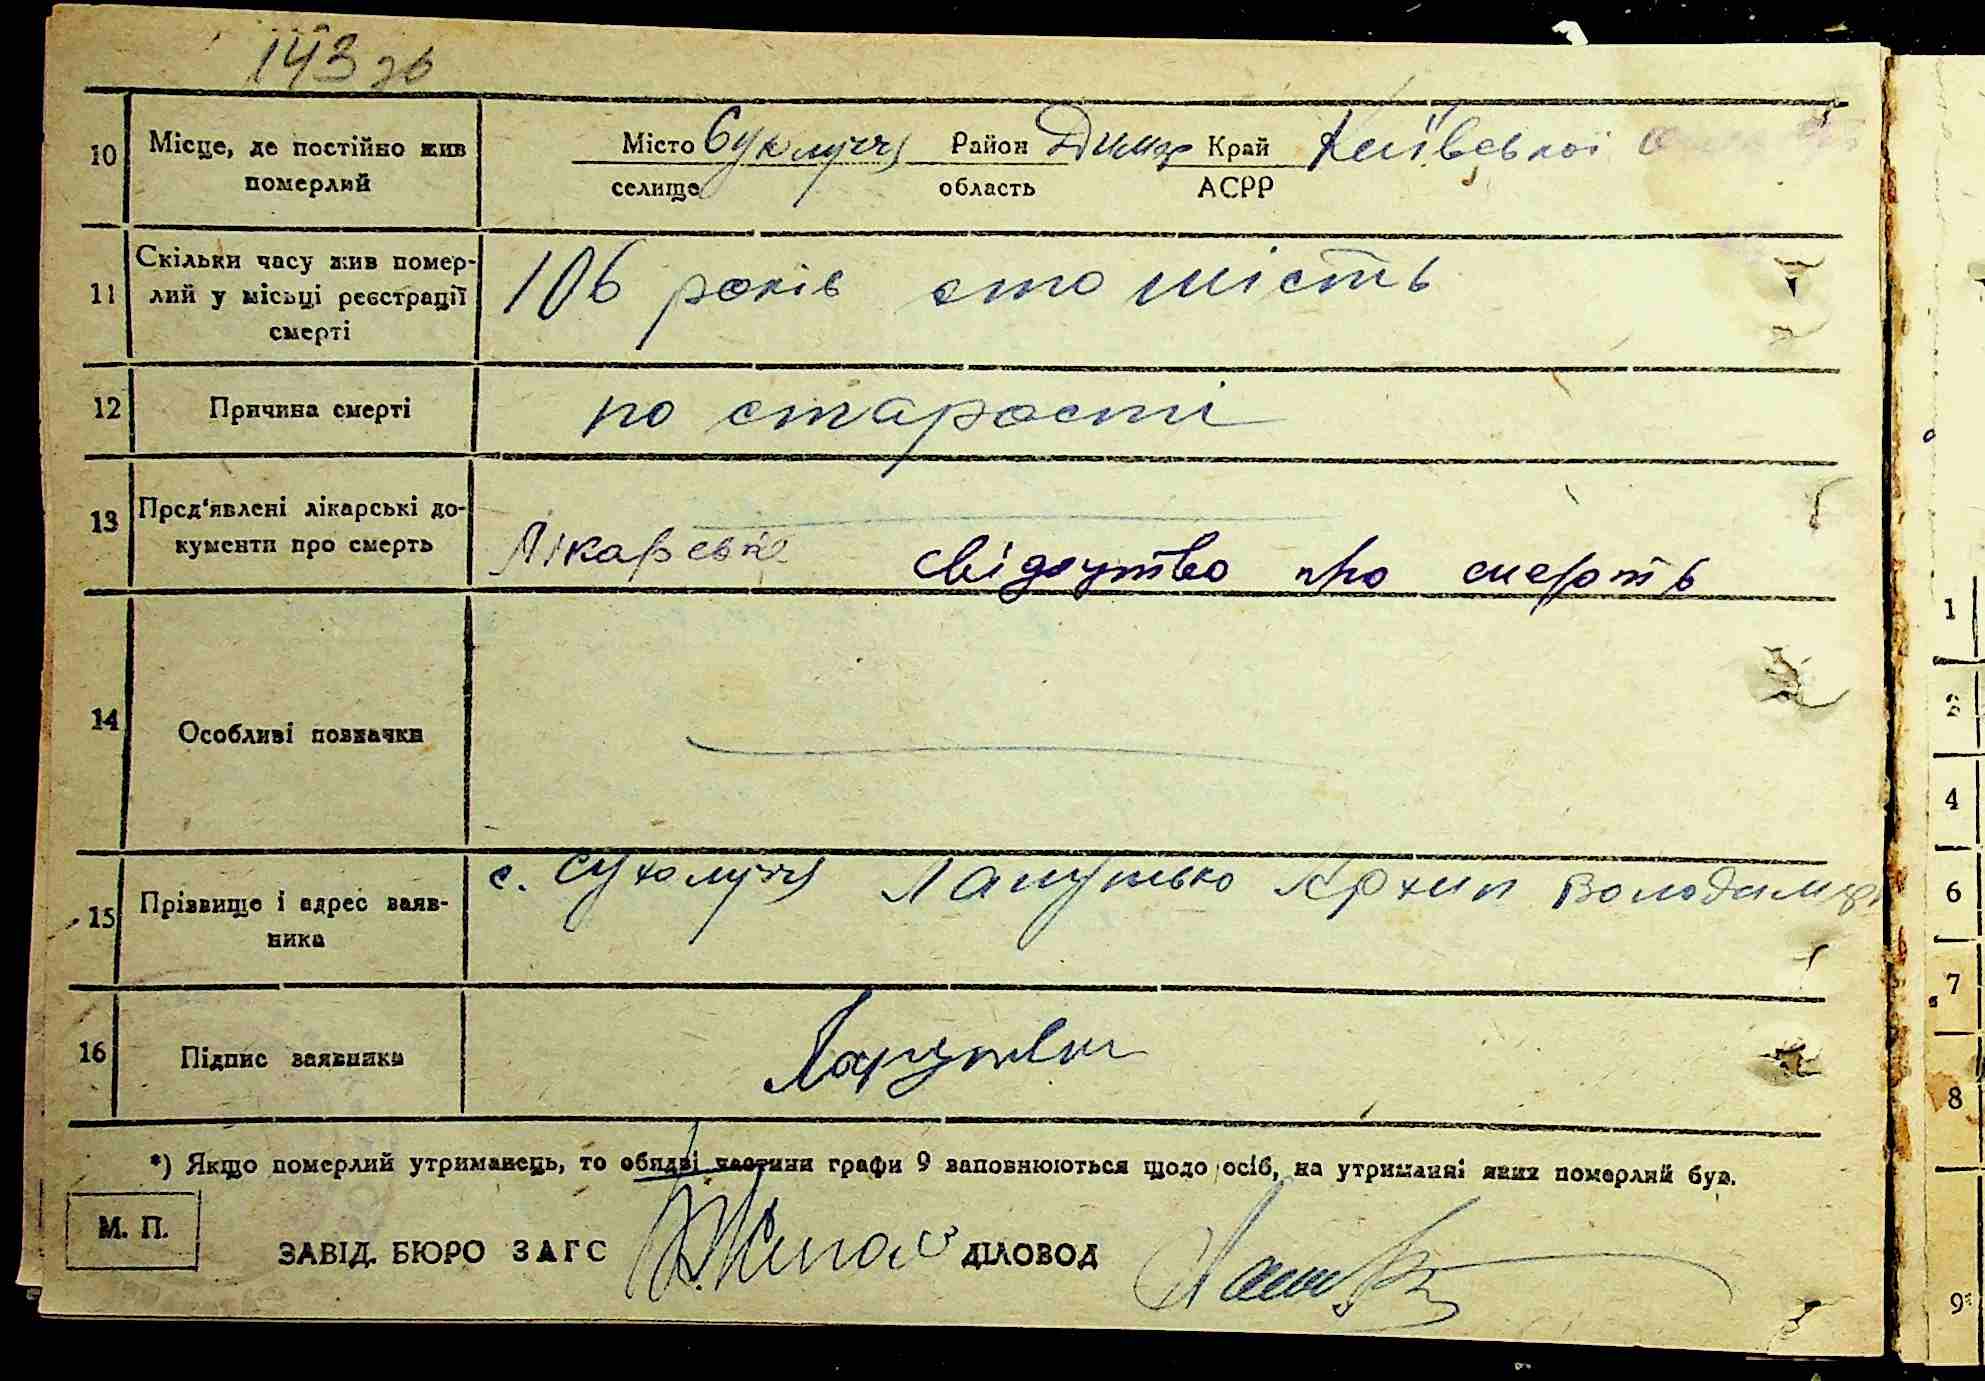 143 зв
10 Місце, де постійно жив померлий
Місто Сухолуччя Район Димер Край Київської
селище область АСРР
11 Скільки часу жив помер-
лий у місьці реєстрації
смерті
106 років сто шість
12 Причина смерті
по старости
13 Пред'явлені лікарські до-
кументи про смерть
Лікарське свідоцтво про смерть
14 Особливі позначки
15 Прізвище і адрес заяв-
ника
с. Сухолуччя Лапутько Архип Володимир
16 Підпис заявника
*) Якщо померлий утриманець, то обидві частини графи 9 заповнюються щодо осіб, на утриманні яких померлий був.
М. П.
ЗАВІД. БЮРО ЗАГС ДІЛОВОД
1
2
4
6
7
8
9